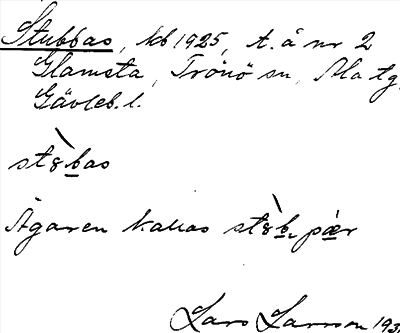 Stubbas, kb 1925, t. å nr 2
Glamsta, Trönö sn, Ala tg,
Gävleb. l.
st8bas
Ägaren kallas st8b. pær
Lars Larsson 193